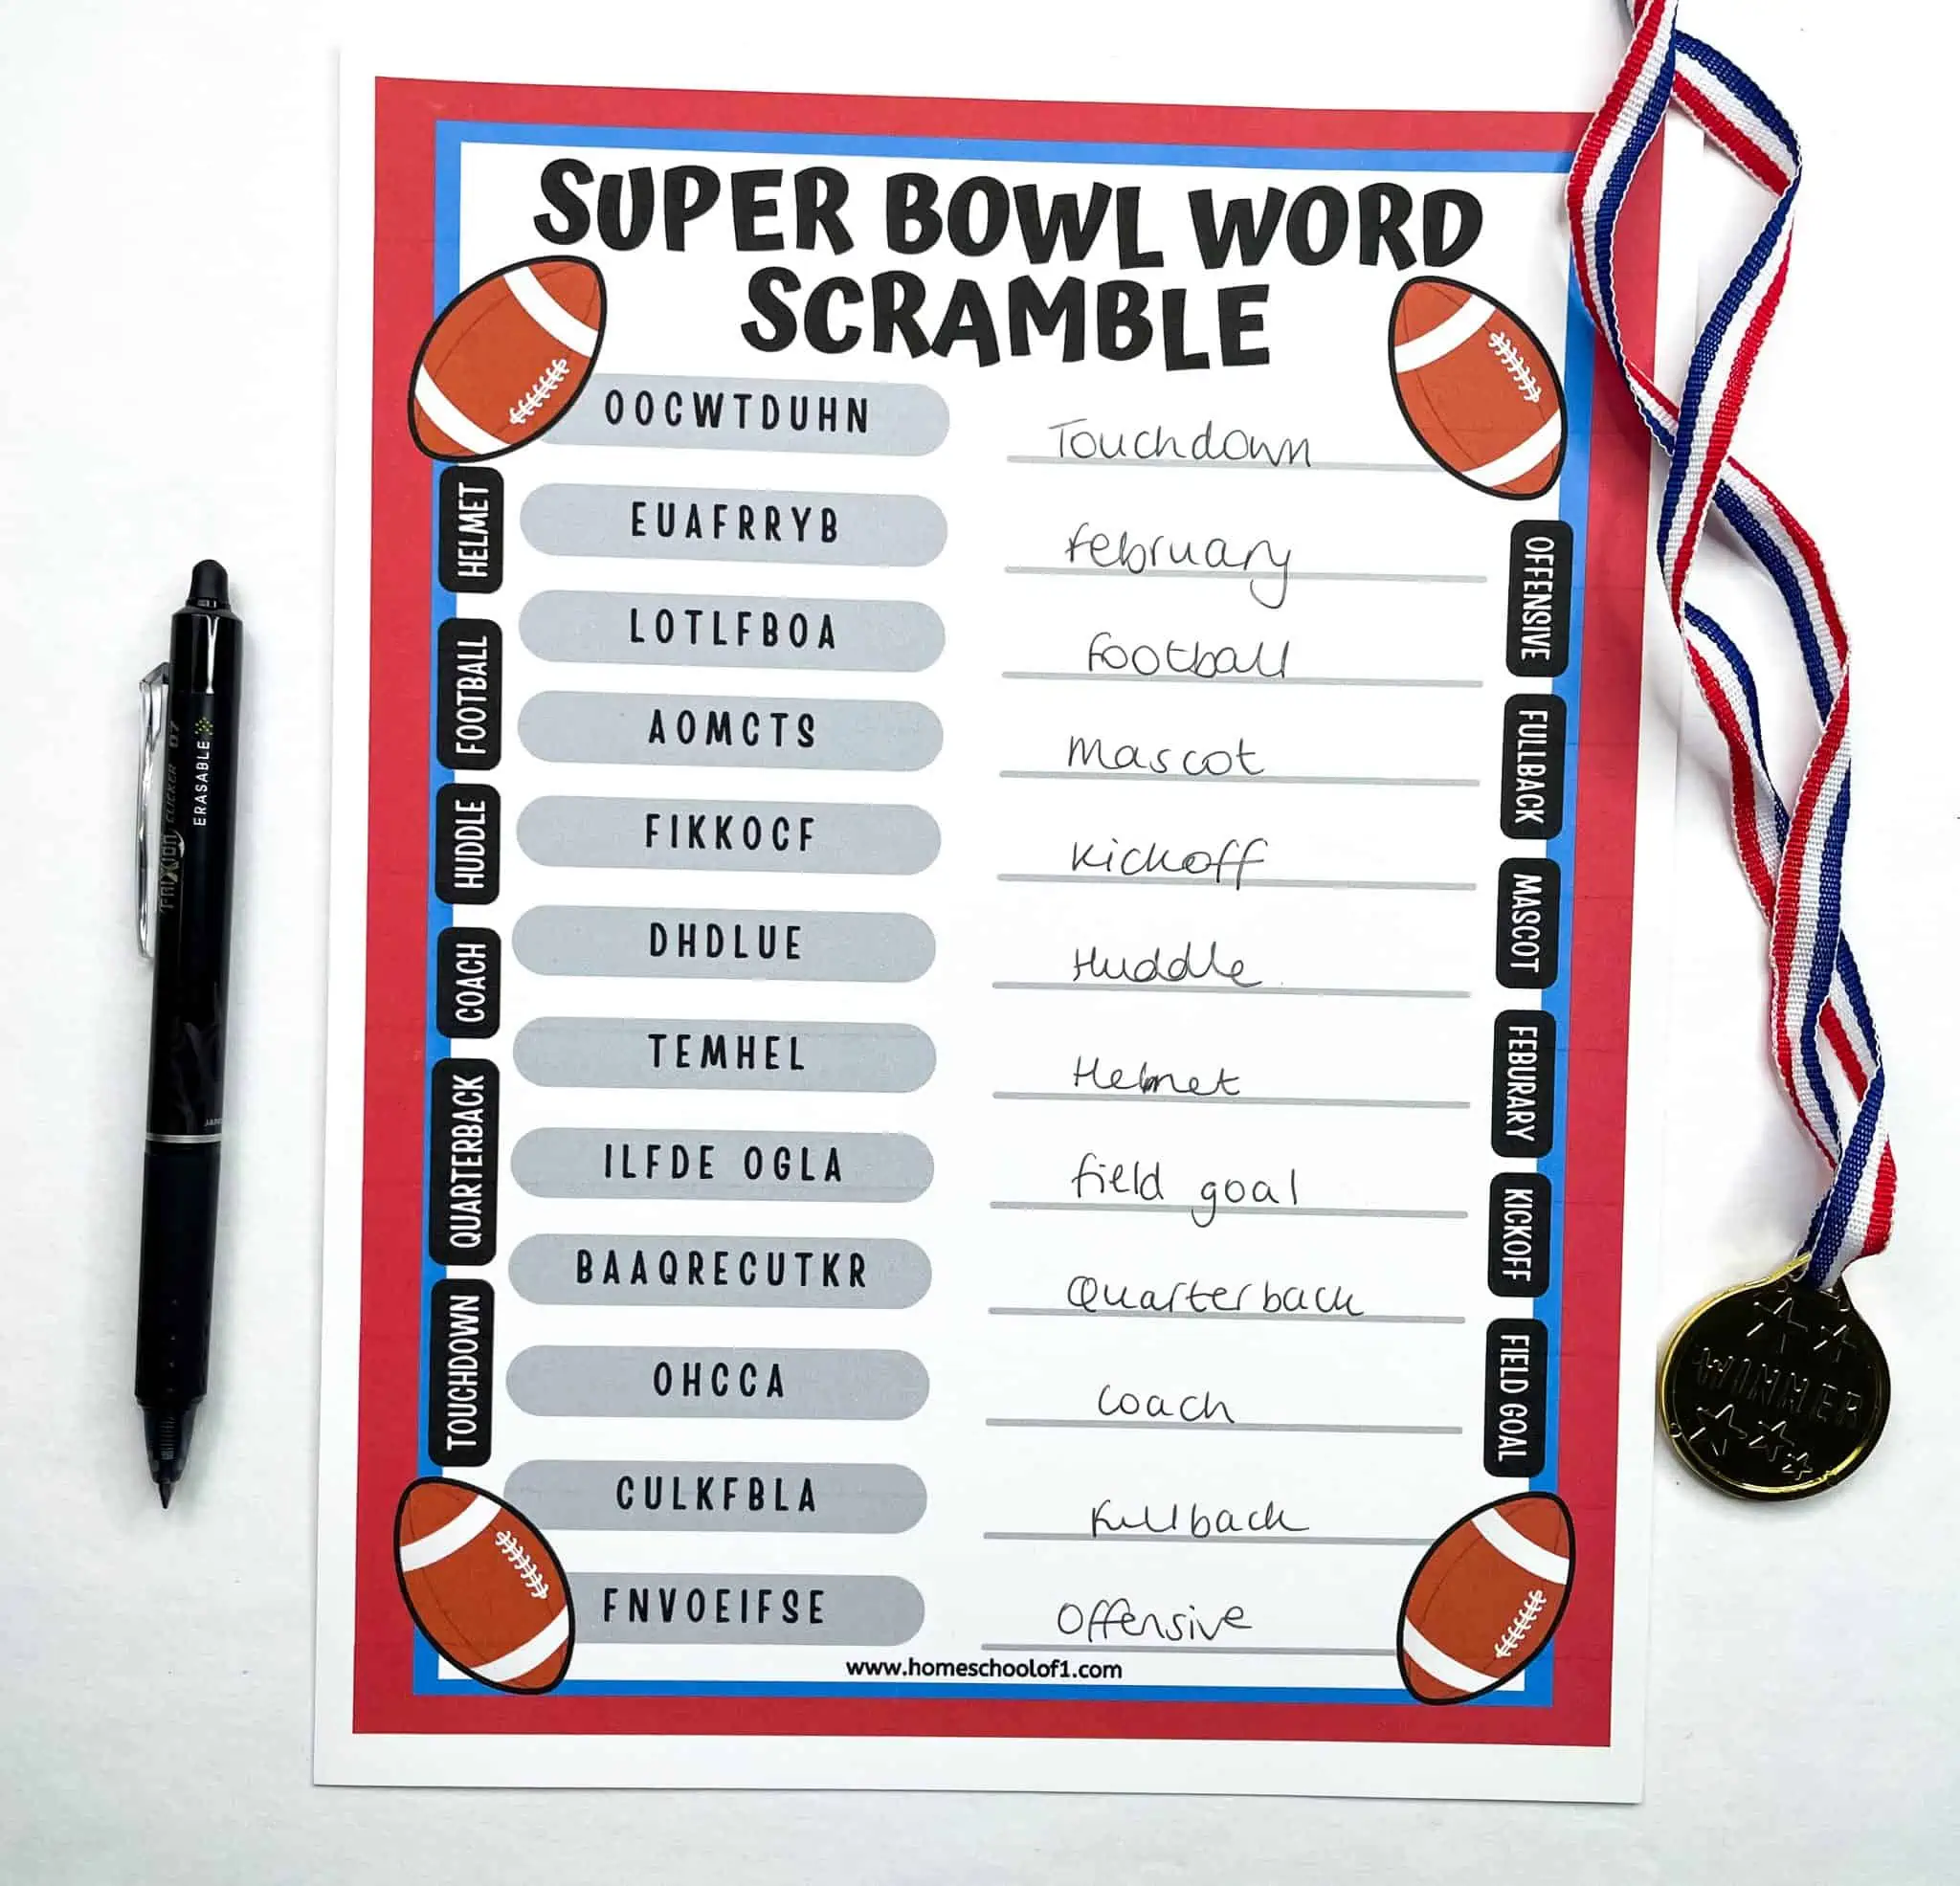 SUPER BOWL WORD
SCRAMBLE
OOCWTDUHN Touchdown
EUAFRRYB february
LOTLFBOA football
AOMCTS mascot
FIKKOCF kickoff
DHDLUE Huddle
TEMHEL Helmet
ILFDE OGLA field goal
BAAQRECUTKR Quarterback
OHCCA coach
CULKFBLA fullback
FNVOEIFSE Offensive
www.homeschoolof1.com
HELMET
FOOTBALL
HUDDLE
COACH
QUARTERBACK
TOUCHDOWN
OFFENSIVE
FULLBACK
MASCOT
FEBURARY
KICKOFF
FIELD GOAL
FRIXION CLICKER 07
ERASABLE
WINNER